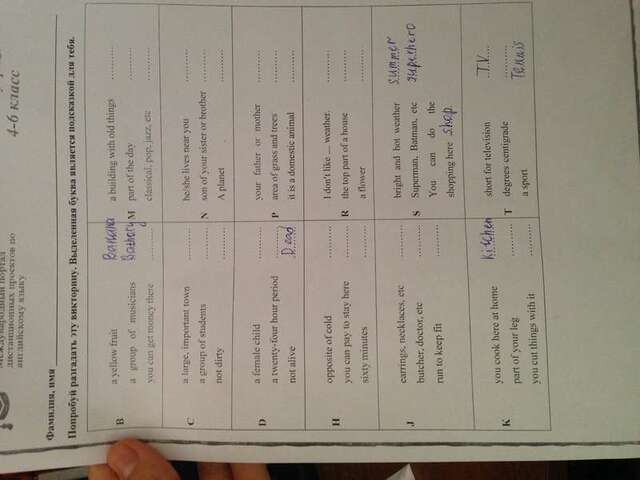 Международный портал
дистанционных проектов по
английскому языку
4-6 класс
Фамилия, имя
Попробуй разгадать эту викторину. Выделенная буква является подсказкой для тебя.
B
a yellow fruit Banana
a group of musicians
you can get money there ............
M
a building with old things ............
part of the day ............
classical, pop, jazz, etc ............
C
a large, important town ............
a group of students ............
not dirty ............
N
he/she lives near you ............
son of your sister or brother ............
A planet ............
D
a female child ............
a twenty-four hour period ............
not alive Dead
P
your father or mother ............
area of grass and trees ............
it is a domestic animal ............
H
opposite of cold ............
you can pay to stay here ............
sixty minutes ............
R
I don't like ... weather. ............
the top part of a house ............
a flower ............
J
earrings, necklaces, etc ............
butcher, doctor, etc ............
run to keep fit ............
S
bright and hot weather summer
Superman, Batman, etc superhero
You can do the
shopping here shop
K
you cook here at home kitchen
part of your leg ............
you cut things with it ............
T
short for television T.V.
degrees centigrade ............
a sport Tennis